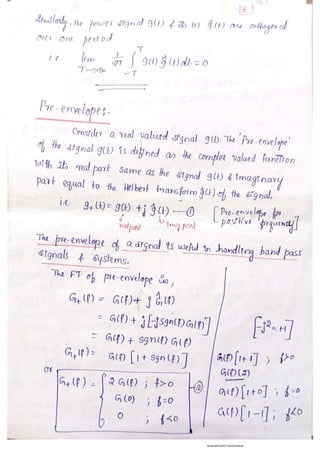 (8)
Similarly, the power signal g(t) & its HT ĝ(t) are orthogonal
over one period
i.e lim T→∞ 1/2T ∫_{-T}^{T} g(t) ĝ(t) dt = 0
Pre-envelope:-
Consider a real valued signal g(t). The 'Pre-envelope'
of the signal g(t) is defined as the complex valued function
with its real part same as the signal g(t) & imaginary
part equal to the Helbert transform ĝ(t) of the signal.
i.e g₊(t) = g(t) + j ĝ(t) — ①
realpart imag part
[Pre-envelope for
positive frequency]
The pre-envelope of a signal is useful in handling band pass
signals & systems.
The FT of pre-envelope is,
G₊(f) = G(f) + j Ĝ(f)
= G(f) + j[-j sgn(f) G(f)]
[-j² = +1]
= G(f) + sgn(f) G(f)
G₊(f) = G(f) [1 + sgn(f)]
or
G₊(f) = { 2 G(f) ; f>0
G(0) ; f=0
0 ; f<0
②
G(f)[1+1] ; f>0
G(f)(2)
G(f)[1+0] ; f=0
G(f)[1-1] ; f<0
Scanned with CamScanner